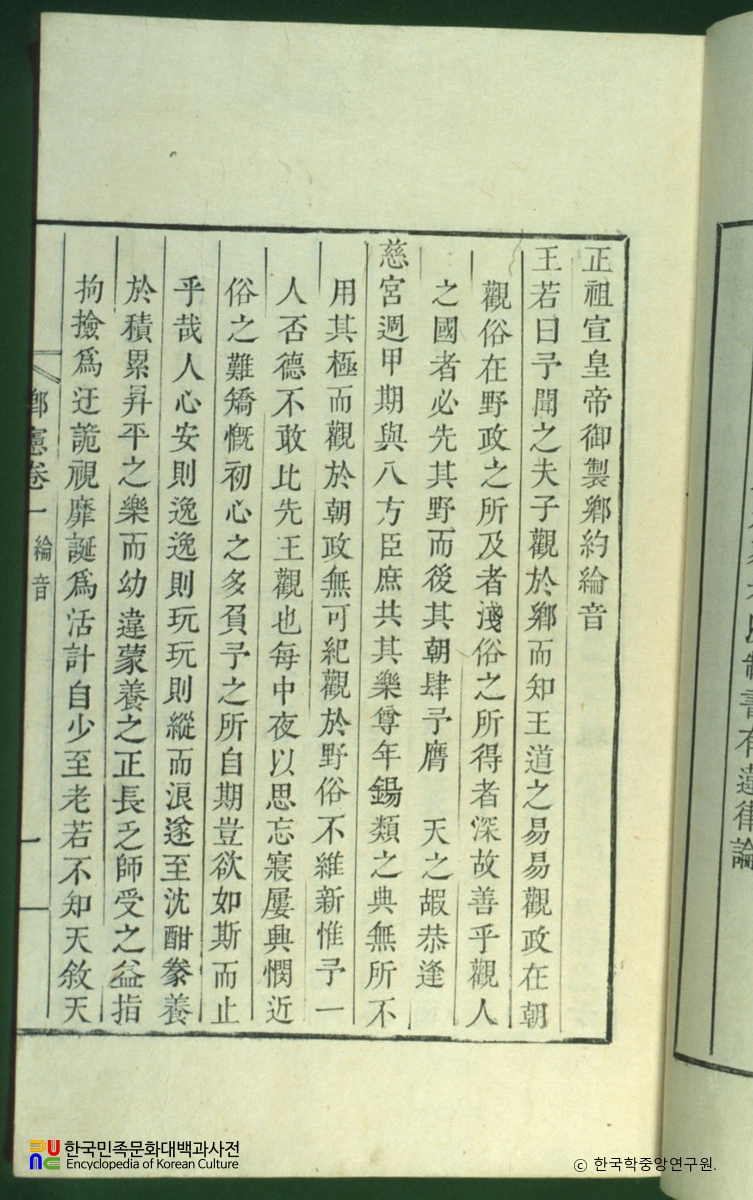 正祖宣皇帝御製鄕約綸音
王若曰予聞之夫子觀於鄕而知王道之易易觀政在朝
觀俗在野政之所及者淺俗之所得者深故善乎觀人
之國者必先其野而後其朝肆予膺 天之嘏恭逢
慈宮週甲期與八方臣庶共其樂尊年錫類之典無所不
用其極而觀於朝政無可紀觀於野俗不維新惟予一
人否德不敢比先王觀也每中夜以思忘寢屢興憫近
俗之難矯慨初心之多負予之所自期豈欲如斯而止
乎哉人心安則逸逸則玩玩則縱而浪遂至沈酣豢養
於積累昇平之樂而幼違蒙養之正長乏師受之益指
拘撿爲迂詭視靡誕爲活計自少至老若不知天敘天
鄕憲卷一 綸音
一
制書有違律論
한국민족문화대백과사전
Encyclopedia of Korean Culture
ⓒ 한국학중앙연구원.